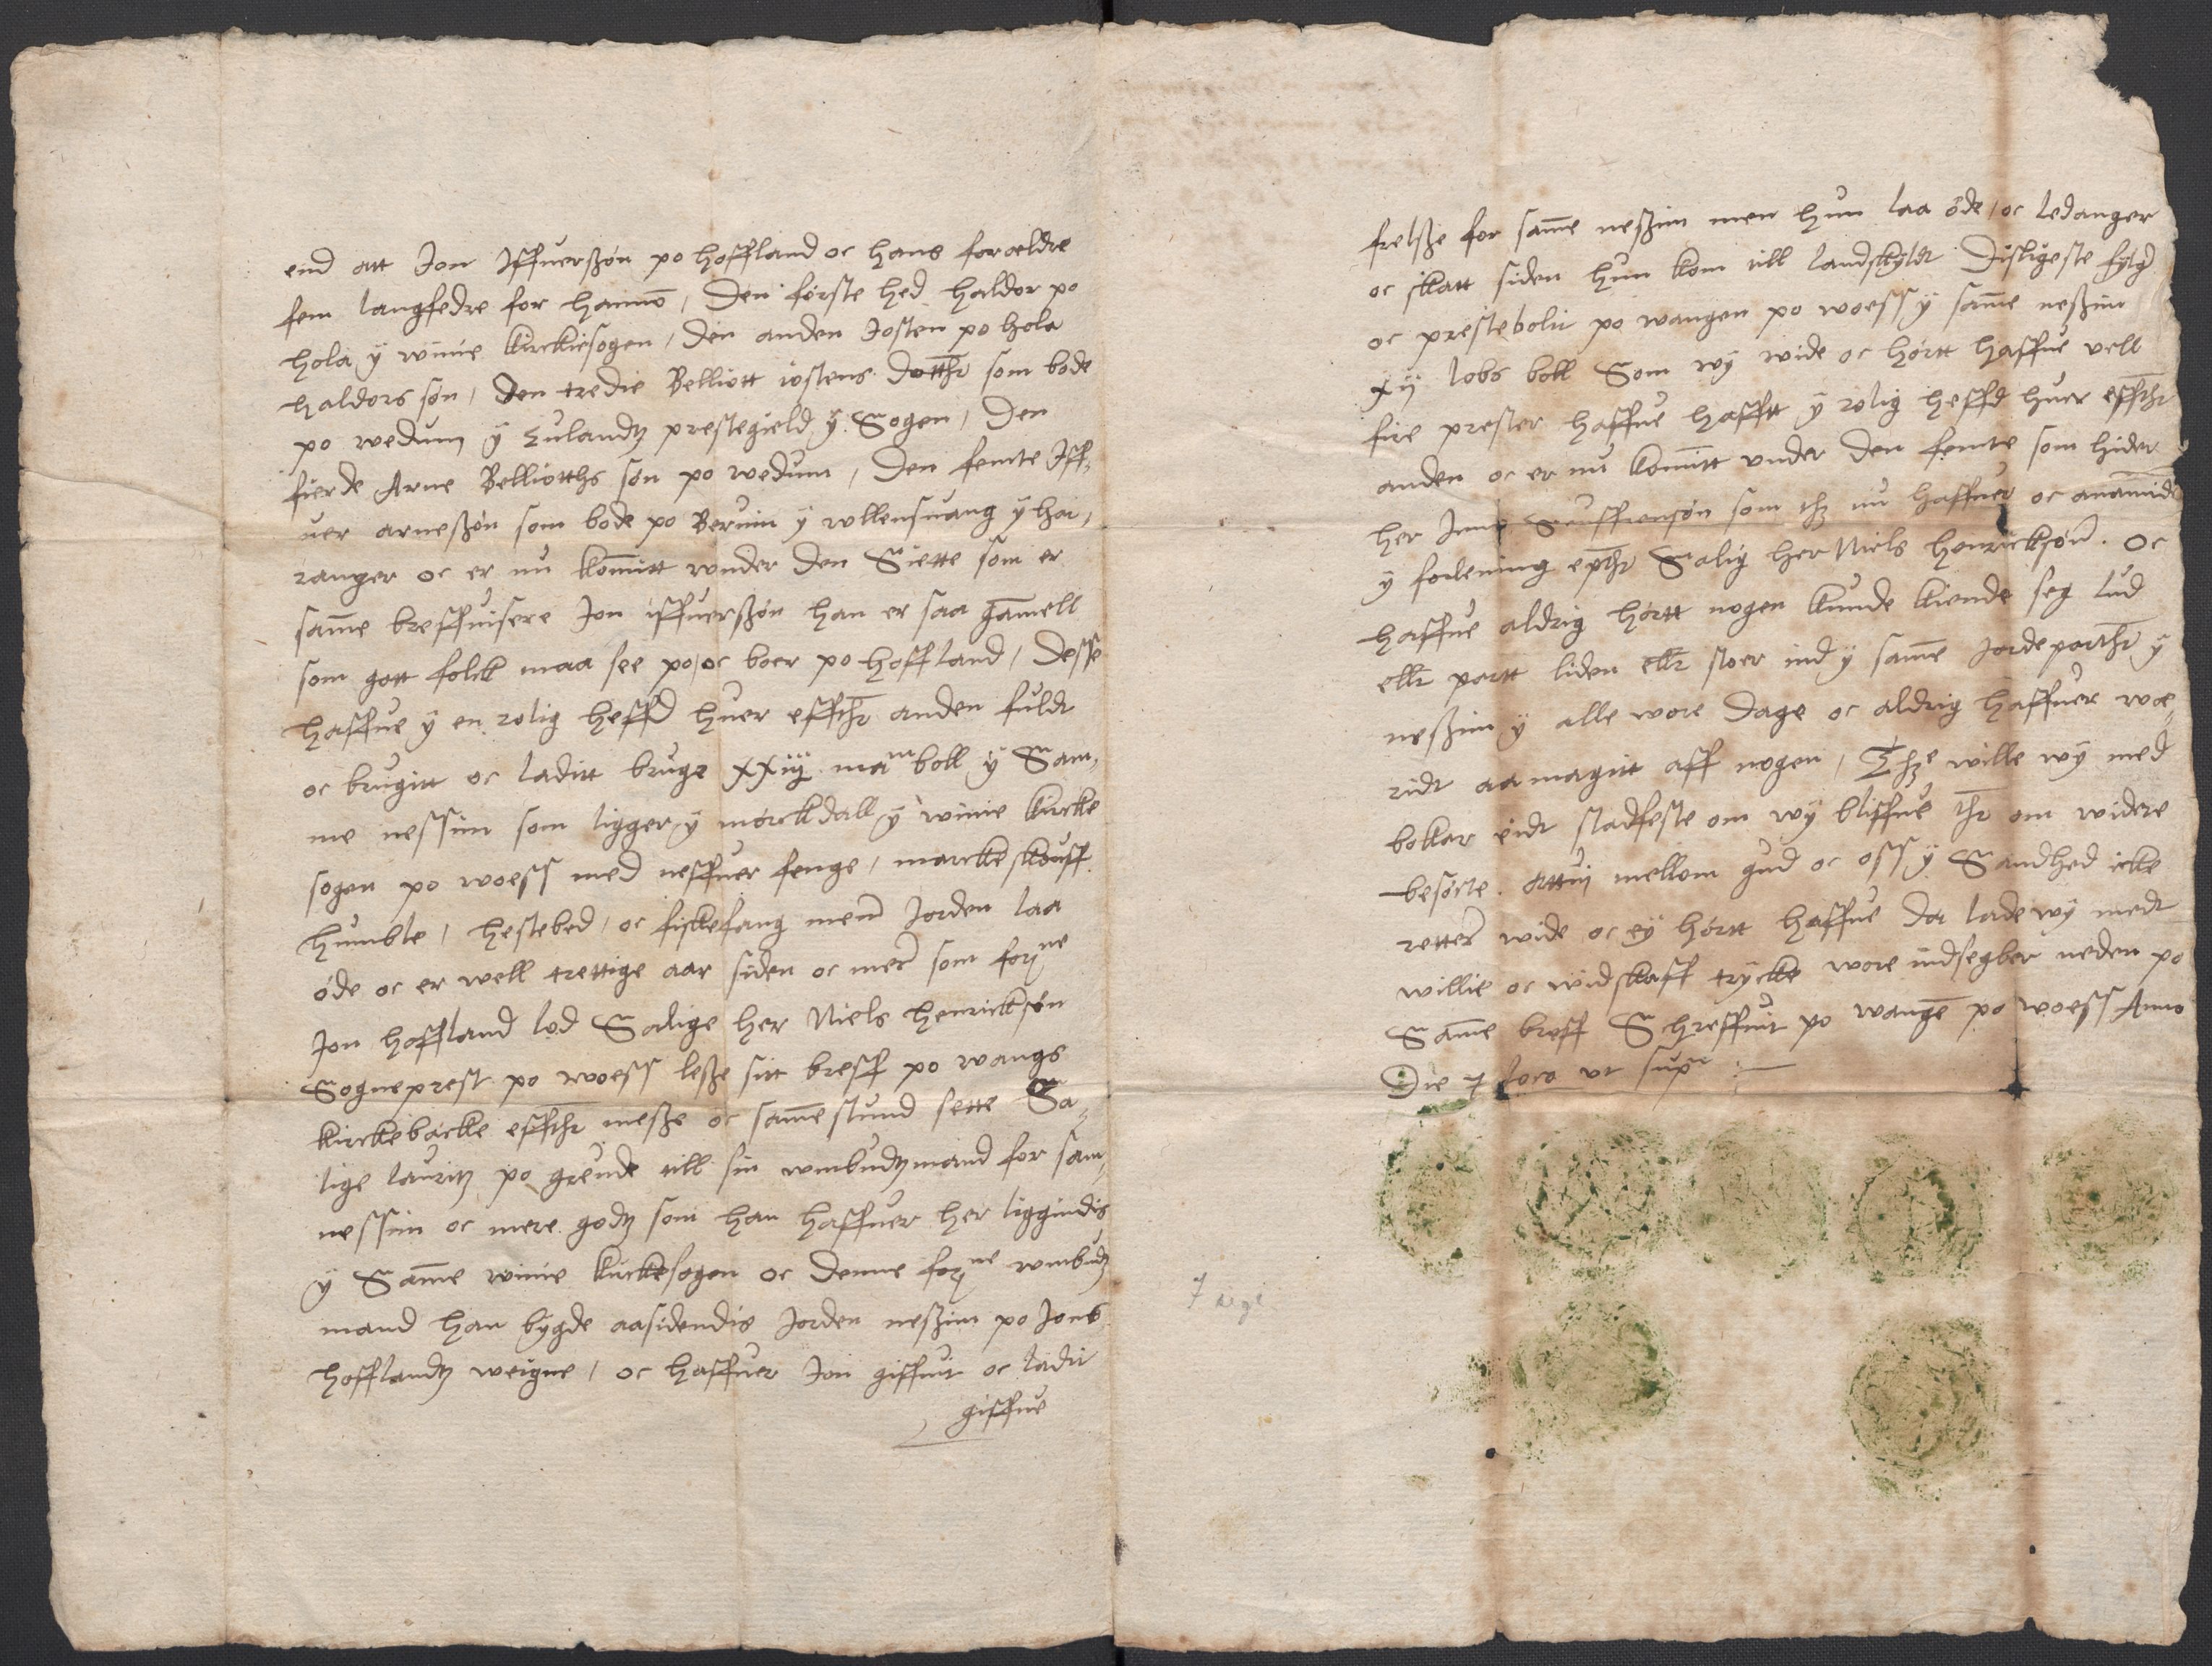 end att Jon Jffuerszøn po hoffland oc hans foræeldre
fem langfedre for hannō, Den første hed haldor po
hola ÿ winie kirckiesogen, den anden Josten po hola
haldors søn, den tredie Belliott iostens dotthr som bode
po wedum ÿ Lulandz prestegield ÿ Sogen, Den
fierde Arne Belliotths søn po wedum, Den femte Jff,
uer arneszøn som bode po Beruin ÿ wllensuang ÿ har,
ranger oc er nu kommitt wnder den Siette som er
samme breffuisere Jon iffuerszøn han er saa gamell
som gott folck maa see po, oc boer po hoffland, Desse
haffue ÿ en rolig heffd huer effthr anden fuldt
oc brugitt oc laditt bruge xxiiij mam boll ÿ Sam,
me nessim som ligger ÿ mørckdall ÿ winie kircke
sogen po woess med neffuer fenge, marcke skouff
humble, hestebed, oc fiskefang menn Jorden laa
øde oc er well trettige aar siden oc mere som forne
Jon hoffland lod Salige her Niels henricksøn
Sogneprest po woess lesze sitt breff po wangs
kirckebacke effthr mesze oc samme stund sette Sa,
lige lauritz po grende till sin wmbudzmand for sam,
nessim oc mere godz som han haffuer her liggindis
ÿ Samme winie kirckesogen oc denne forne wmbudz
mand han bÿgde aasidendis Jorden neszim po Jons
hofflandz weigne, oc haffuer Jon giffuit oc ladit
giffue
frelsze for samme neszim men hun laa øde, oc ledanger
oc skatt siden hun kom till landskÿldt Disligeste fylgd
oc prestebolit po wangen po woess ÿ samme neszim
xij lobs boll Som wÿ wide oc hørtt haffue well
fire prester haffue hafftt ÿ rolig heffd huer effthr
anden oc er nu kommitt vnder den femte som hider
her Jens Seuffrensøn som thz nu haffuer oc anammide
ÿ forlening epthr Salig her Niels henricksønn. Oc
haffue aldrig hørtt nogen kunde kiende seg lud
ellr partt liden ellr stoer ind ÿ samme Jordeparthr ÿ
neszim ÿ alle wore dage oc aldrig haffuer wæ,
ridt aamagitt aff nogen, Thze wille wÿ med
bokar eidt stadfeste om wÿ bliffue thr om widere
besøcte. attui mellom gud oc oss ÿ Sandhed icke
retter wide oc eÿ hørtt haffue da lade wÿ medt
willie oc widskaff trÿcke wore indsegher neden po
Samme breff Schreffuit po wange po woess Anno
Die 7 loco vt supra
7 segl